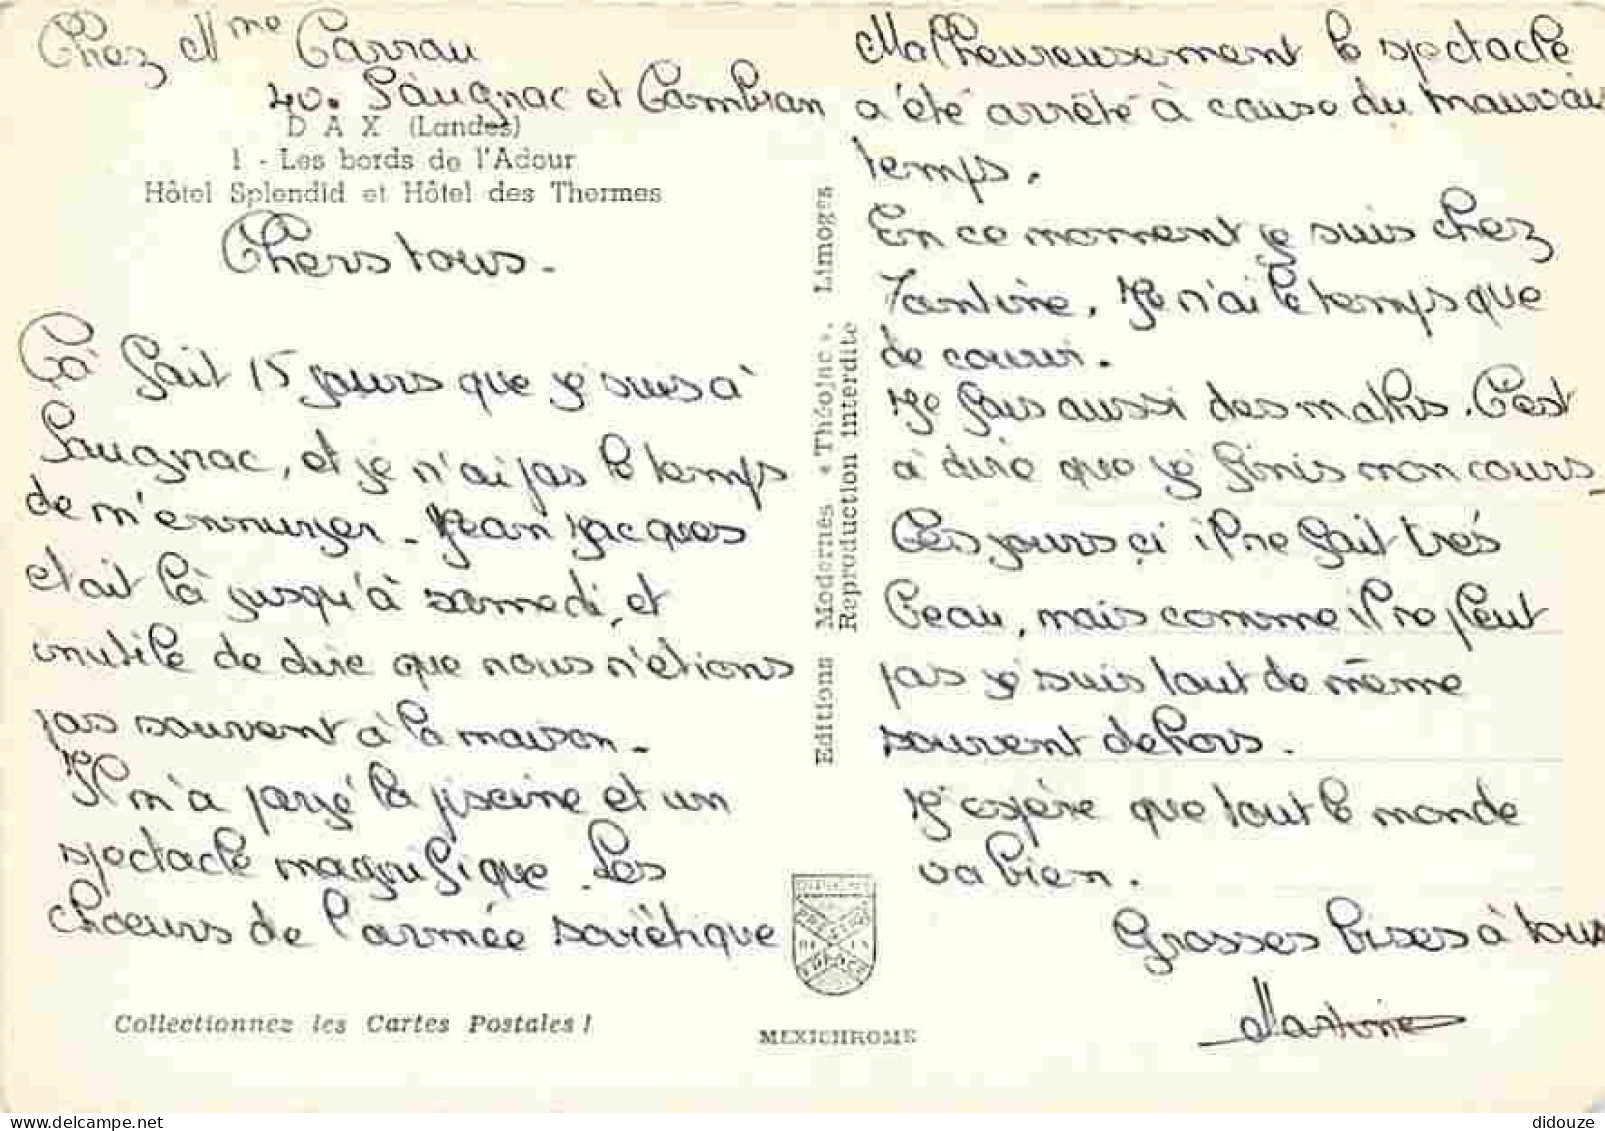 Chez Mme Carrau
40. Saugnac et Cambran
DAX (Landes)
1 - Les bords de l'Adour
Hôtel Splendid et Hôtel des Thermes
Chers tous.
Ça fait 15 jours que je suis à
Saugnac, et je n'ai pas le temps
de m'ennuyer. Jean Jacques
etait là jusqu'à samedi, et
inutile de dire que nous n'étions
pas souvent à la maison.
Il m'a payé la piscine et un
spectacle magnifique. Les
choeurs de l'armée soviétique
Malheureusement le spectacle
a été arrêté à cause du mauvais
temps.
En ce moment je suis chez
Tantine. Je n'ai le temps que
de courir.
Je fais aussi des maths. C'est
à dire que je finis mon cours.
Ces jours çi il ne fait très
beau, mais comme il ne pleut
pas je suis tout de même
souvent dehors.
J'espère que tout le monde
va bien.
Grosses bises à tous
Martine
Editions Modernes « Théojac », Limoges
Reproduction interdite
FRANCE
Collectionnez les Cartes Postales !
MEXICHROME
didouze